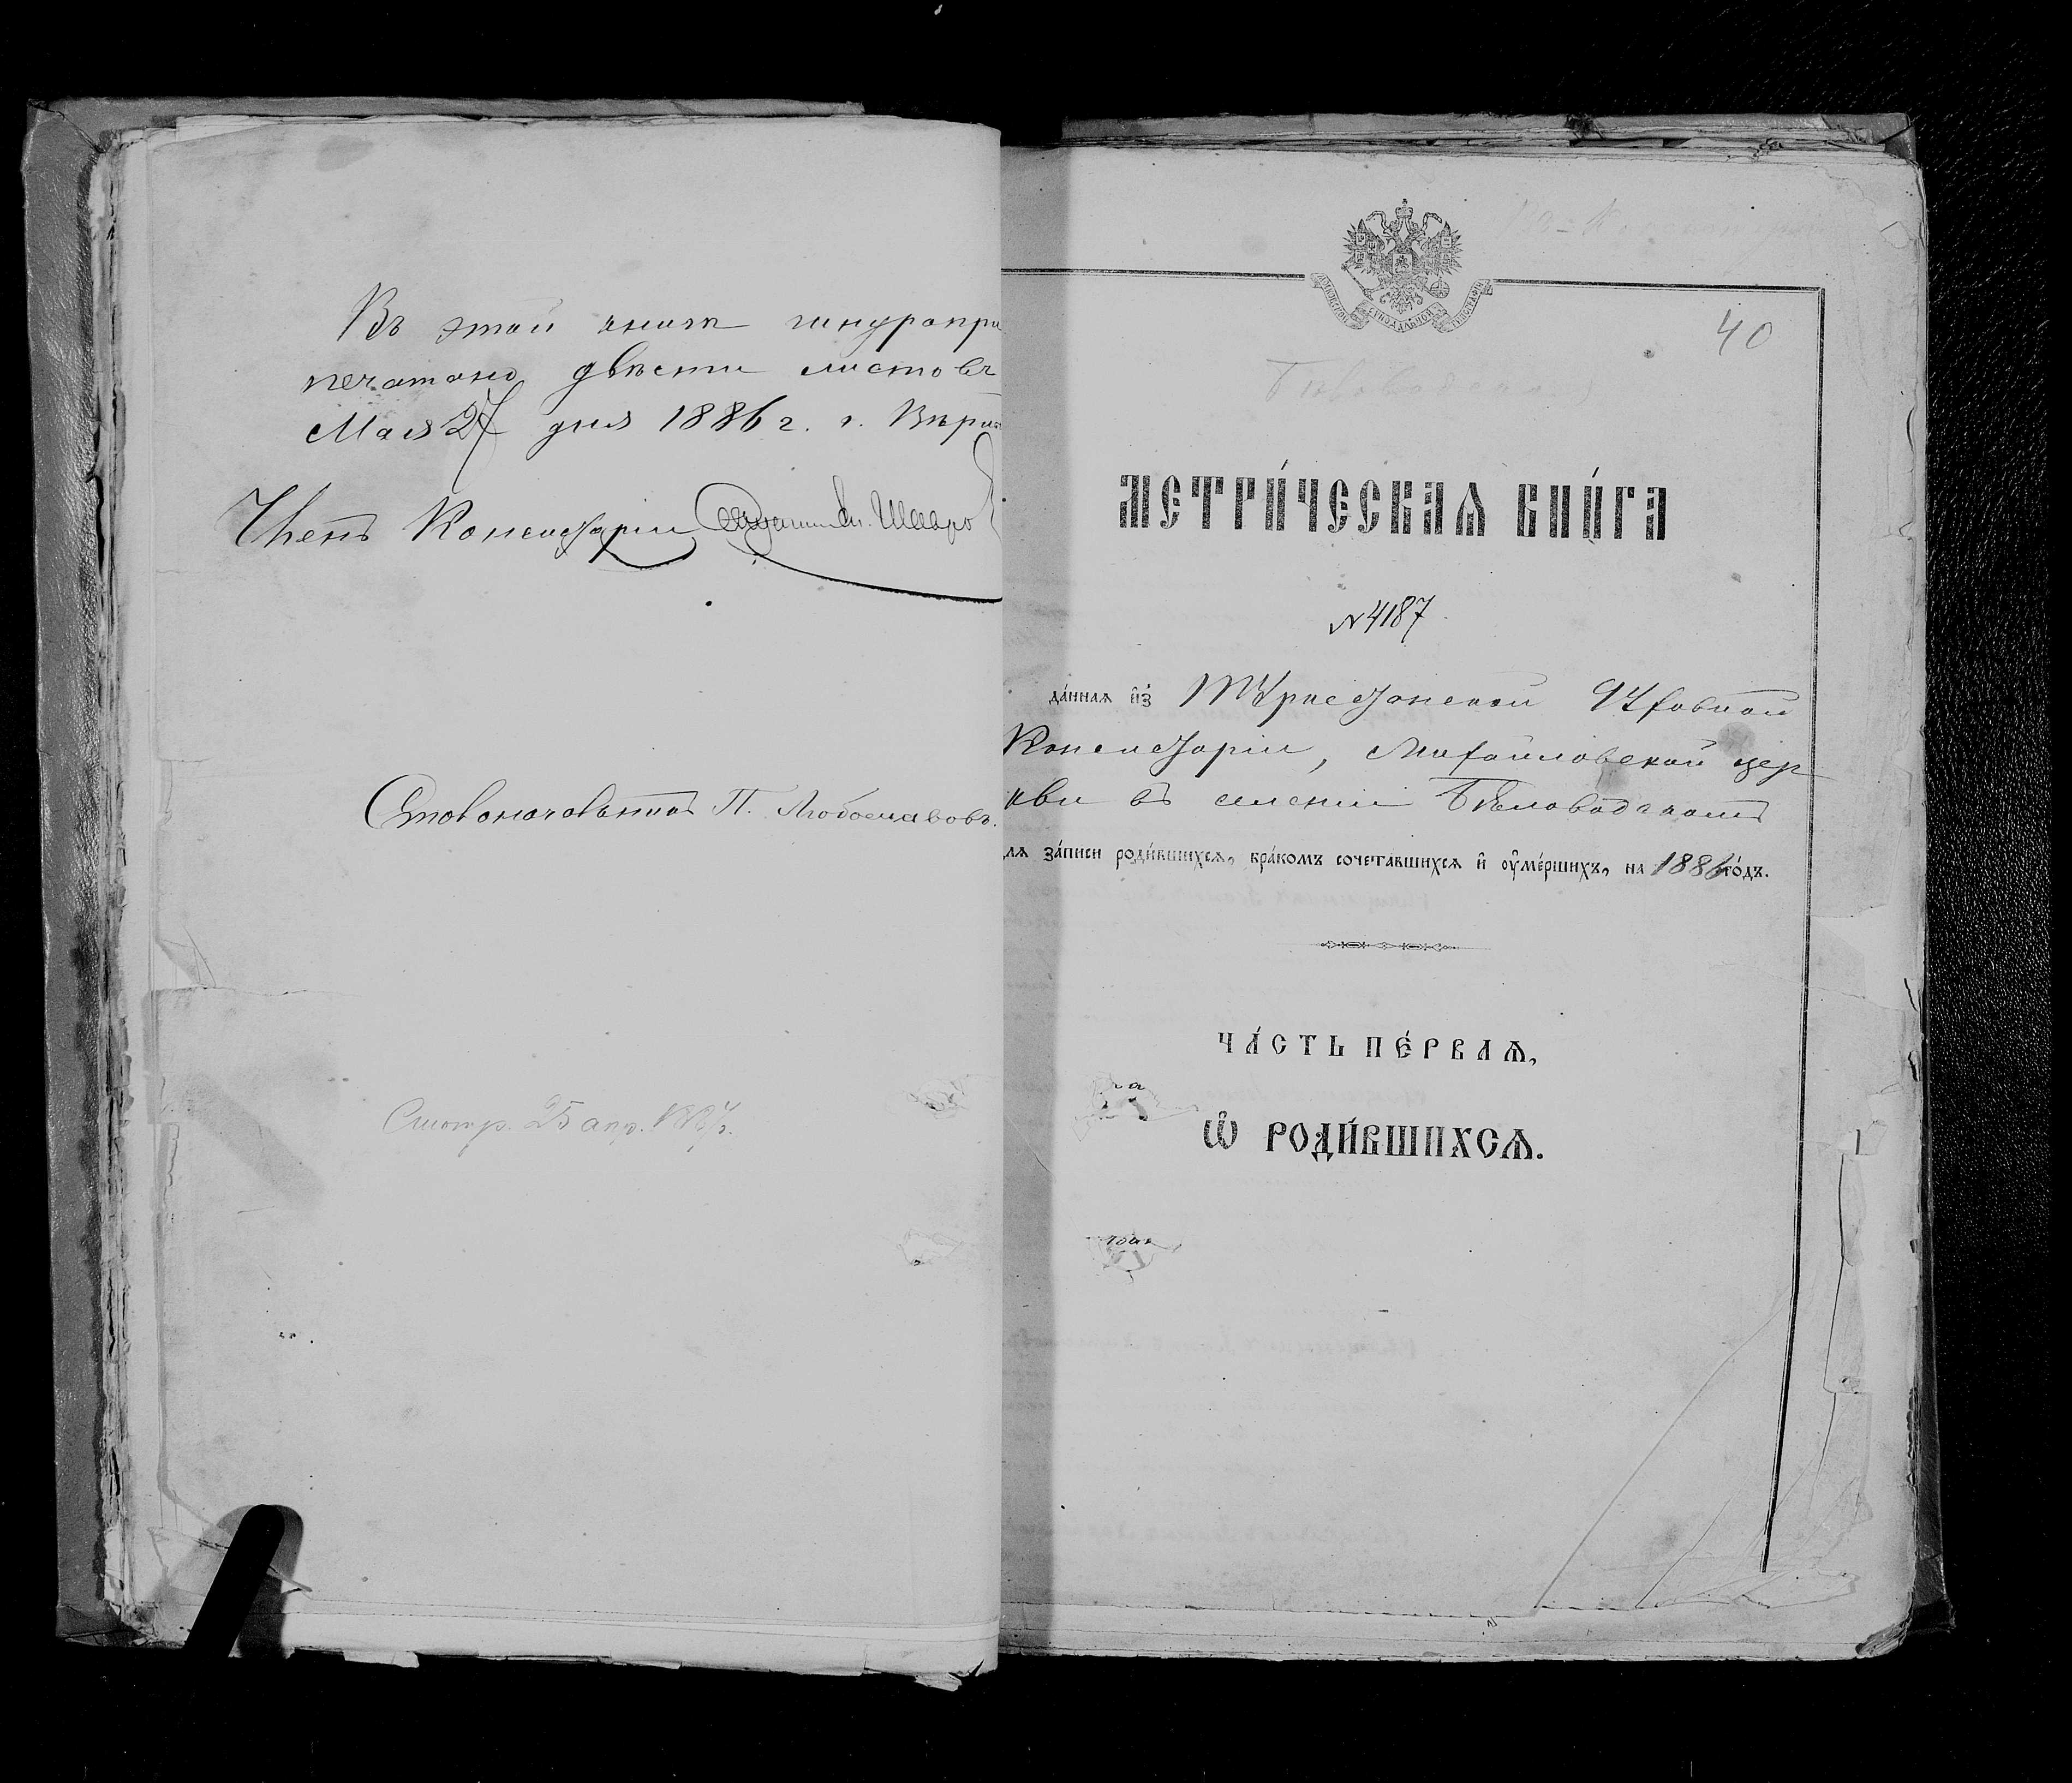 Въ этой книгѣ шнуропри
печатано двѣсти листовъ
Мая 27 дня 1886 г. г. Вѣрн
Членъ Консисторіи Священникъ Шавро
Столоначальникъ П. Любославовъ.
Смотр. 25 апр. 1887 г.
МОСКОВСКОЙ СѴНОДАЛЬНОЙ ТИПОГРАФІИ
40
МЕТРИ́ЧЕСКАѦ КНИ́ГА
№ 4187
да́ннаѧ и҆з̾ Туркестанской Духовной
Консисторіи, Михайловской цер-
кви въ селеніи Бѣловодскомъ
лѧ за́писи роди́вшихсѧ, бра́комъ сочетавшихсѧ и҆ ѹ҆ме́ршихъ, на 1886 го́дъ.
ЧА́СТЬ ПЕ́РВАѦ,
Ѡ҆ РОДИ́ВШИХСѦ.